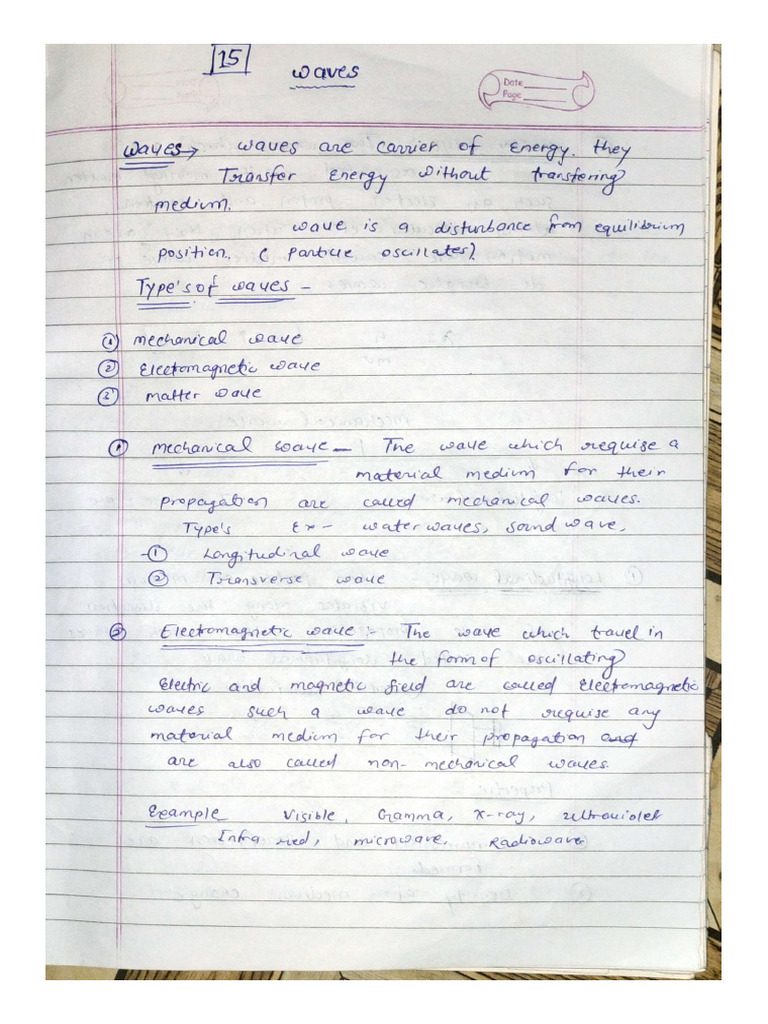 15
waves
Date
Page
Waves → waves are carrier of Energy. they
Transfer Energy without transfering
medium.
wave is a disturbance from equilibrium
position. ( particle oscillates).
Type's of waves -
① mechanical wave
② Electromagnetic wave
③ matter wave
① mechanical wave - The wave which requise a
material medium for their
propagation are called mechanical waves.
Type's Ex - water waves, sound wave,
-① Longitudinal wave
② Transverse wave
② Electromagnetic wave :- The wave which travel in
the form of oscillating
Electric and magnetic field are called Electromagnetic
waves such a wave do not requise any
material medium for their propagation and
are also called non-mechanical waves.
Example Visible, Gamma, X-ray, ultraviolet
Infra red, microwave, Radiowave